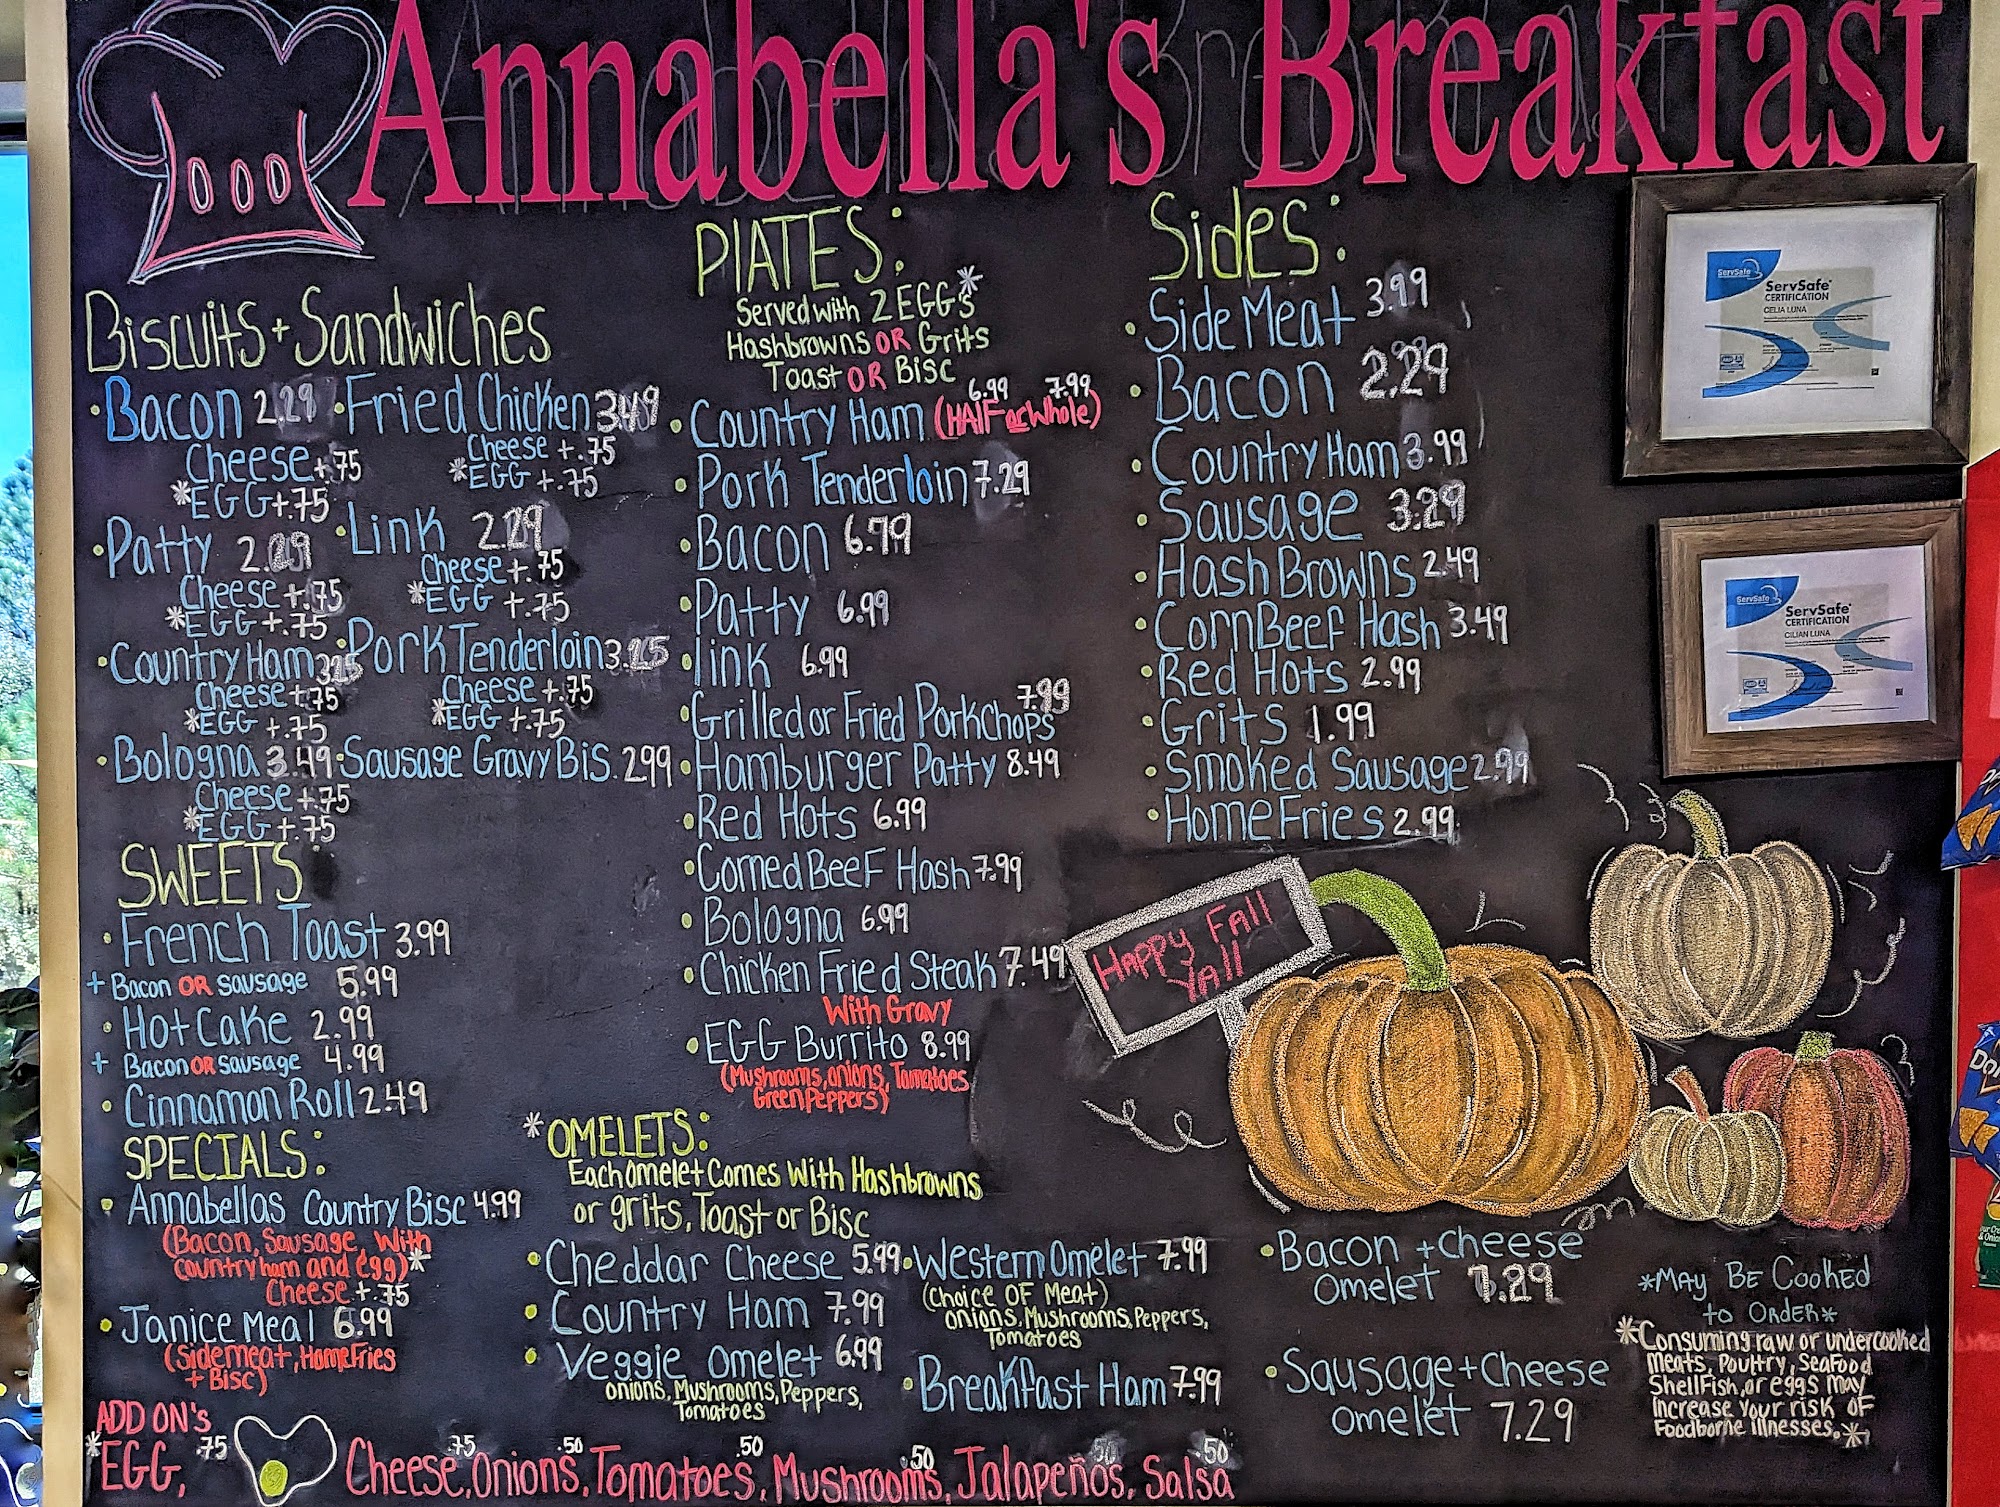 Annabella's Breakfast
Biscuits + Sandwiches
Bacon 2.29
Cheese +.75
*EGG +.75
Patty 2.29
Cheese +.75
*EGG +.75
Country Ham 3.25
Cheese +.75
*EGG +.75
Bologna 3.49
Cheese +.75
*EGG +.75
Fried Chicken 3.49
Cheese +.75
*EGG +.75
Link 2.29
Cheese +.75
*EGG +.75
Pork Tenderloin 3.25
Cheese +.75
*EGG +.75
Sausage Gravy Bis. 2.99
SWEETS
French Toast 3.99
+ Bacon OR sausage 5.99
Hot Cake 2.99
+ Bacon OR sausage 4.99
Cinnamon Roll 2.49
SPECIALS:
Annabellas Country Bisc 4.99
(Bacon, Sausage, With
country ham and egg)*
Cheese +.75
Janice Meal 6.99
(Sidemeat, HomeFries
+ Bisc)
PLATES:
Served with 2 EGG's*
Hashbrowns OR Grits
Toast OR Bisc
6.99 7.99
Country Ham (HAlF or Whole)
Pork Tenderloin 7.29
Bacon 6.79
Patty 6.99
link 6.99
7.99
Grilled or Fried PorkChops
Hamburger Patty 8.49
Red Hots 6.99
Corned BeeF Hash 7.99
Bologna 6.99
Chicken Fried Steak 7.49
With Gravy
EGG Burrito 8.99
(Mushrooms, onions, Tomatoes
GreenPeppers)
Sides:
Side Meat 3.99
Bacon 2.29
Country Ham 3.99
Sausage 3.29
Hash Browns 2.49
CornBeeF Hash 3.49
Red Hots 2.99
Grits 1.99
Smoked Sausage 2.99
Home Fries 2.99
HAPPY FAll
YAll
*OMELETS:
Each omelet Comes With Hashbrowns
or grits, Toast or Bisc
Cheddar Cheese 5.99
Country Ham 7.99
Veggie omelet 6.99
onions, Mushrooms, Peppers,
Tomatoes
Western Omelet 7.99
(Choice OF Meat)
onions, Mushrooms, Peppers,
Tomatoes
Breakfast Ham 7.99
Bacon + cheese
Omelet 7.29
Sausage + Cheese
omelet 7.29
*MAY BE Cooked
to ORDER*
*Consuming raw or undercooked
meats, Poultry, Seafood
ShellFish, or eggs may
Increase Your risk OF
Foodborne Illnesses.*
ADD ON's
*EGG, .75
Cheese, .75 Onions, .50 Tomatoes, .50 Mushrooms, .50 Jalapeños, .50 Salsa .50
ServSafe
ServSafe®
CERTIFICATION
CELIA LUNA
ServSafe
ServSafe®
CERTIFICATION
CILIAN LUNA